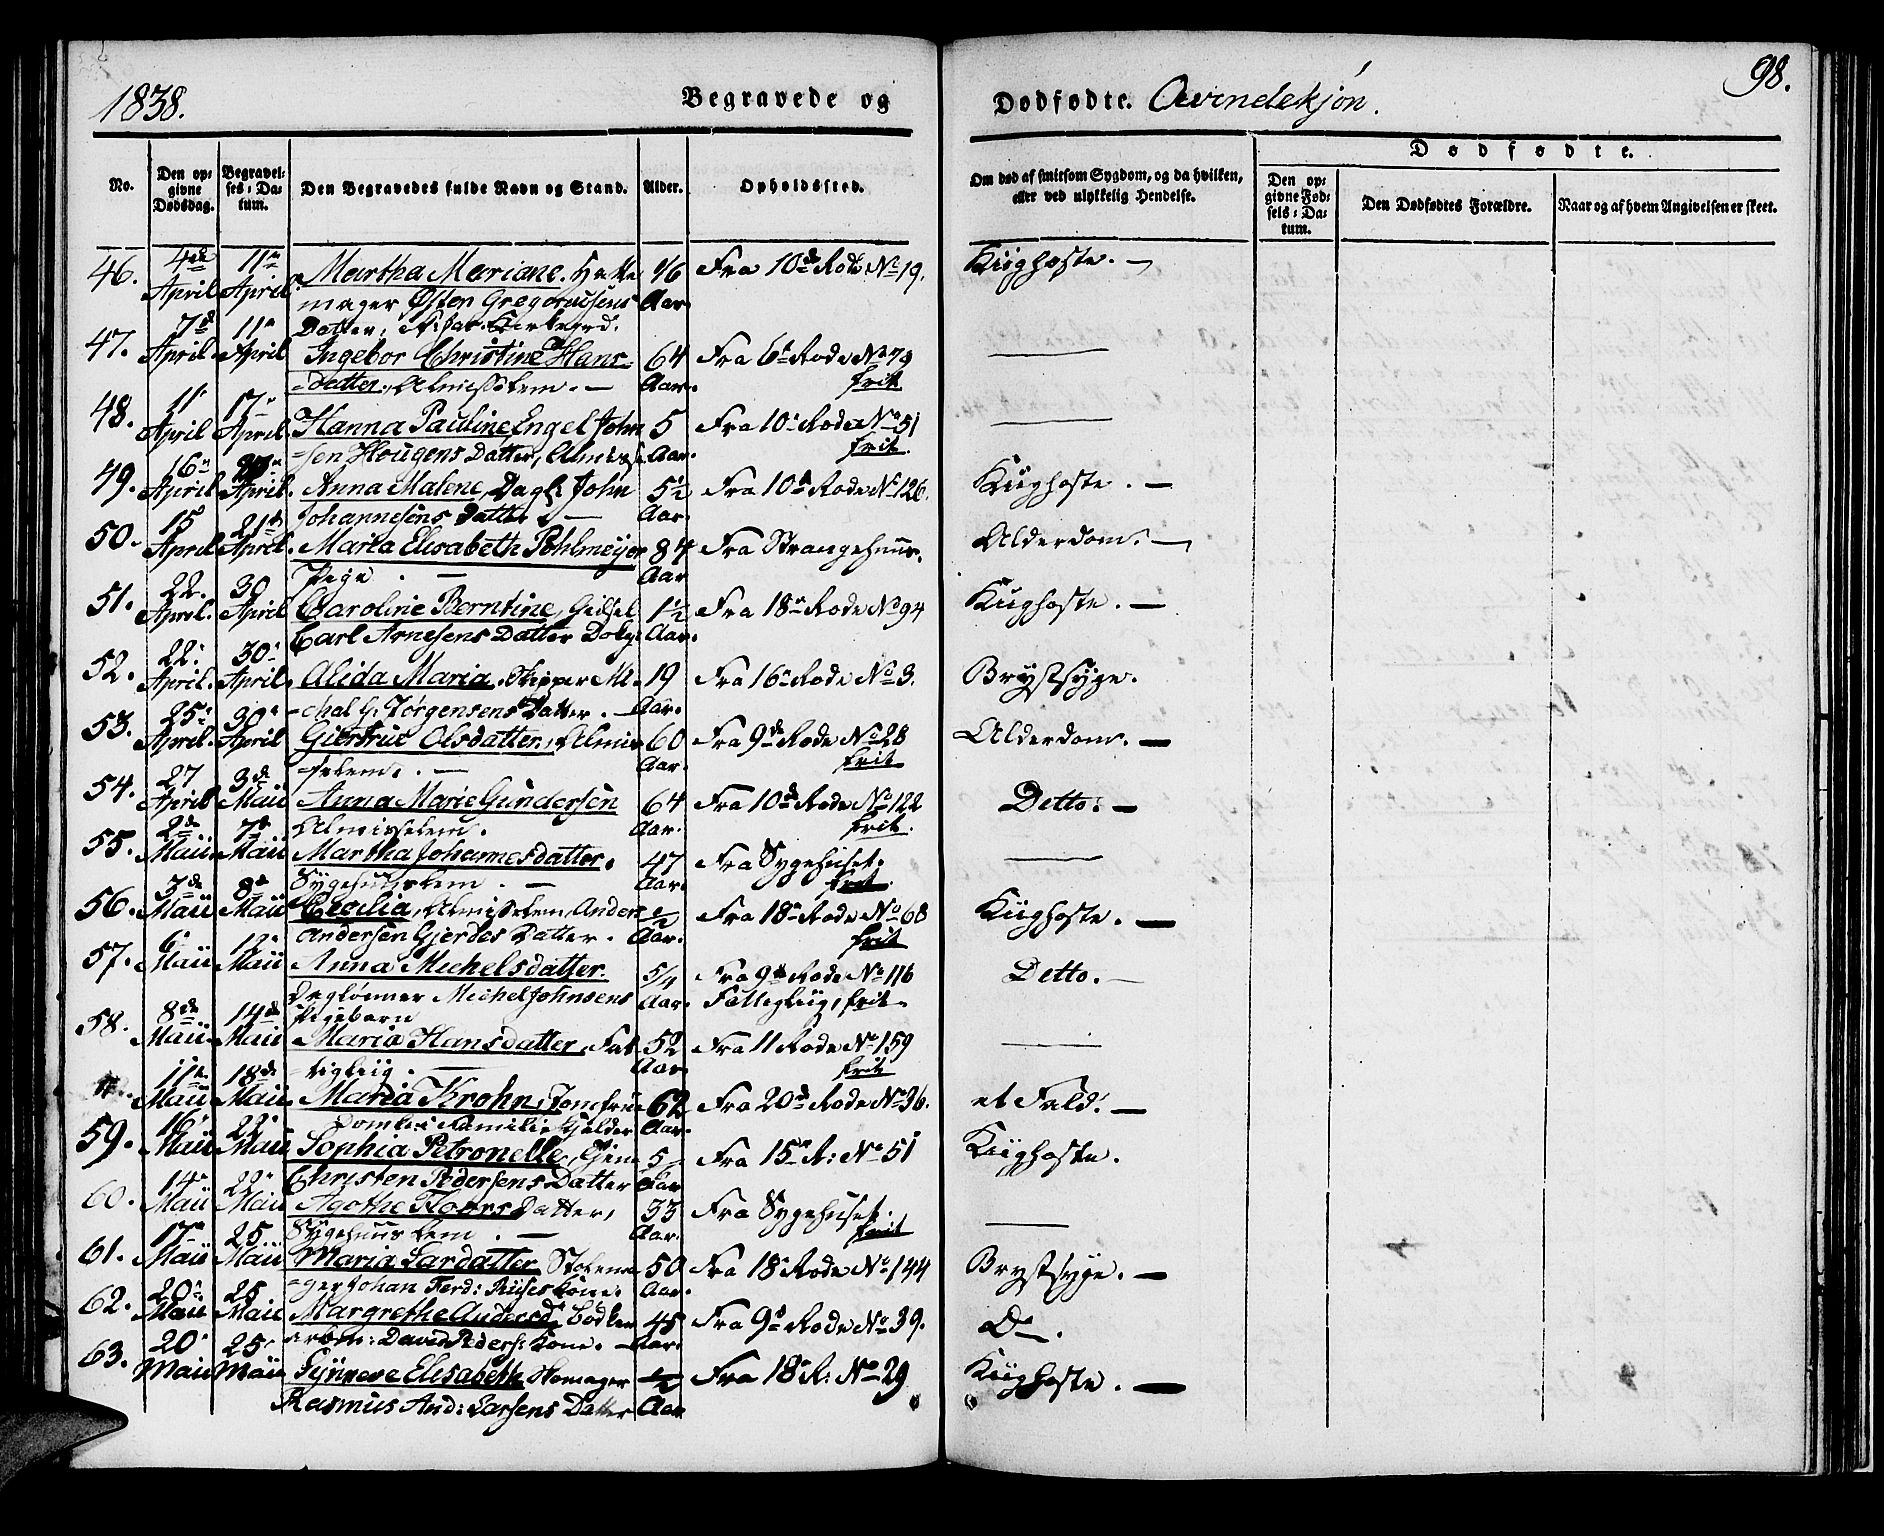 1838.
Begravede og
Dødfødte. Qvindekjøn.
98.
No.
Den op-
givne
Dødsdag.
Begravel-
ses-Da-
tum.
Den Begravedes fulde Navn og Stand.
Alder.
Opholdssted.
Om død af smitsom Sygdom, og da hvilken,
eller ved ulykkelig Hendelse.
Dødfødte.
Den op-
givne Fød-
sels-Da-
tum.
Den Dødfødtes Forældre.
Naar og af hvem Angivelsen er skeet.
46. 4de April 11te April Martha Mariane, Fra 10de Rode No 19. Kighoste.
mager Østen Gregoriusens Aar.
Datter,
47. 7de April 11te April Ingebor Christine Hans- 64 Fra 6te Rode No 79
datter, Almisselem. Aar. frit
48. 11te April 17de April Hanna Pauline, Engel John 5 Fra 10de Rode No 51
sen Hougens Datter, Aar. frit
49. 16de April April Anna Malene, Dagl: John 5½ Fra 10de Rode No 126. Kighoste.
Johannesens Datter Aar.
50. 15 April 21de April Maria Elisabeth Pohlmeyer 84 Fra Strangehuus. Alderdom.
Pige Aar
51. 22. April 30 April Caroline Berntine, 1½ Fra 18de Rode No 94 Kighoste.
Carl Arnesens Datter Aar.
52. 22. April 30 April Alida Maria, Skipper Mi- 19 Fra 16de Rode No 3. Brystsyge.
chal G. Jørgensens Datter. Aar.
53. 25de April 30te April Giertrue Olsdatter, Almis- 60 Fra 9de Rode No 28 Alderdom.
selem. Aar. frit
54. 27 April 3de Maii Anna Marie Gundersen 64 Fra 10de Rode No 122 Detto.
Almisselem. Aar. frit.
55. 2de Maii 7de Maii Martha Johannesdatter. 47 Fra Sygehuset.
Sygehuuslem. Aar. frit.
56. 3de Maii 8de Maii Cecilia, Almisselem Anders ½ Fra 18de Rode No 68 Kighoste.
Andersen Gjerdes Datter. Aar. frit
57. 6te Maii 12te Maii Anna Michelsdatter. 5/4 Fra 9de Rode No 116 Detto.
Daglønner Michel Johnsens Aar. Fattiglig, frit
Pigebarn
58. 8de Maii 14de Maii Maria Hansdatter, Fat- 52 Fra 11 Rode No 159
tiglig. Aar. frit
11te Maii 18de Maii Maria Krohn, Jomfrue 62 Fra 20de Rode No 36. et Fald.
Familie Aar.
59. 16 Maii 22de Maii Sophia Petronelle, 5 Fra 15de R: No 51 Kighoste.
Christen Pedersens Datter Aar
60. 14de Maii 22de Maii Agothe Datter, 33 Fra Sygehuset.
Sygehuus Lem. Aar. frit
61. 17de Maii 25 Maii Maria Larsdatter 50 Fra 18de Rode No 144 Brystsyge.
Johan Ferd: Riises Kone. Aar.
62. 20de Maii 25 Maii Margrethe Andersd: Bødker 45 Fra 9de Rode No 39. Do.
David Peders: Kone. Aar.
63. 20 Maii 25 Maii Synneve Elisabeth ½ Fra 18de R: No 29 Kighoste.
Rasmus And: Larsens Datter Aar